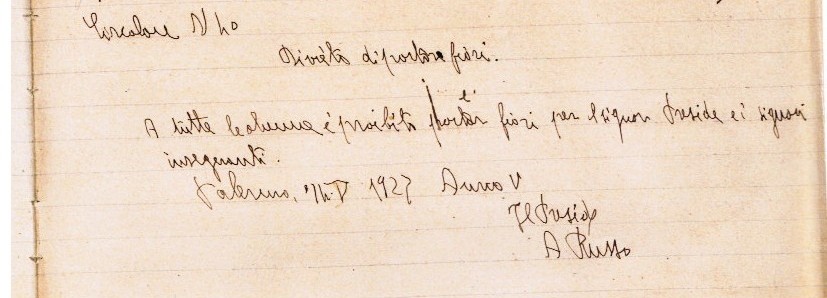 Circolare N 40
Divieto di portare fiori.
A tutte le alunne è proibito portar fiori per i signor Preside e i signori
insegnanti.
Palermo, 1927 Anno V
Il Preside
A Russo